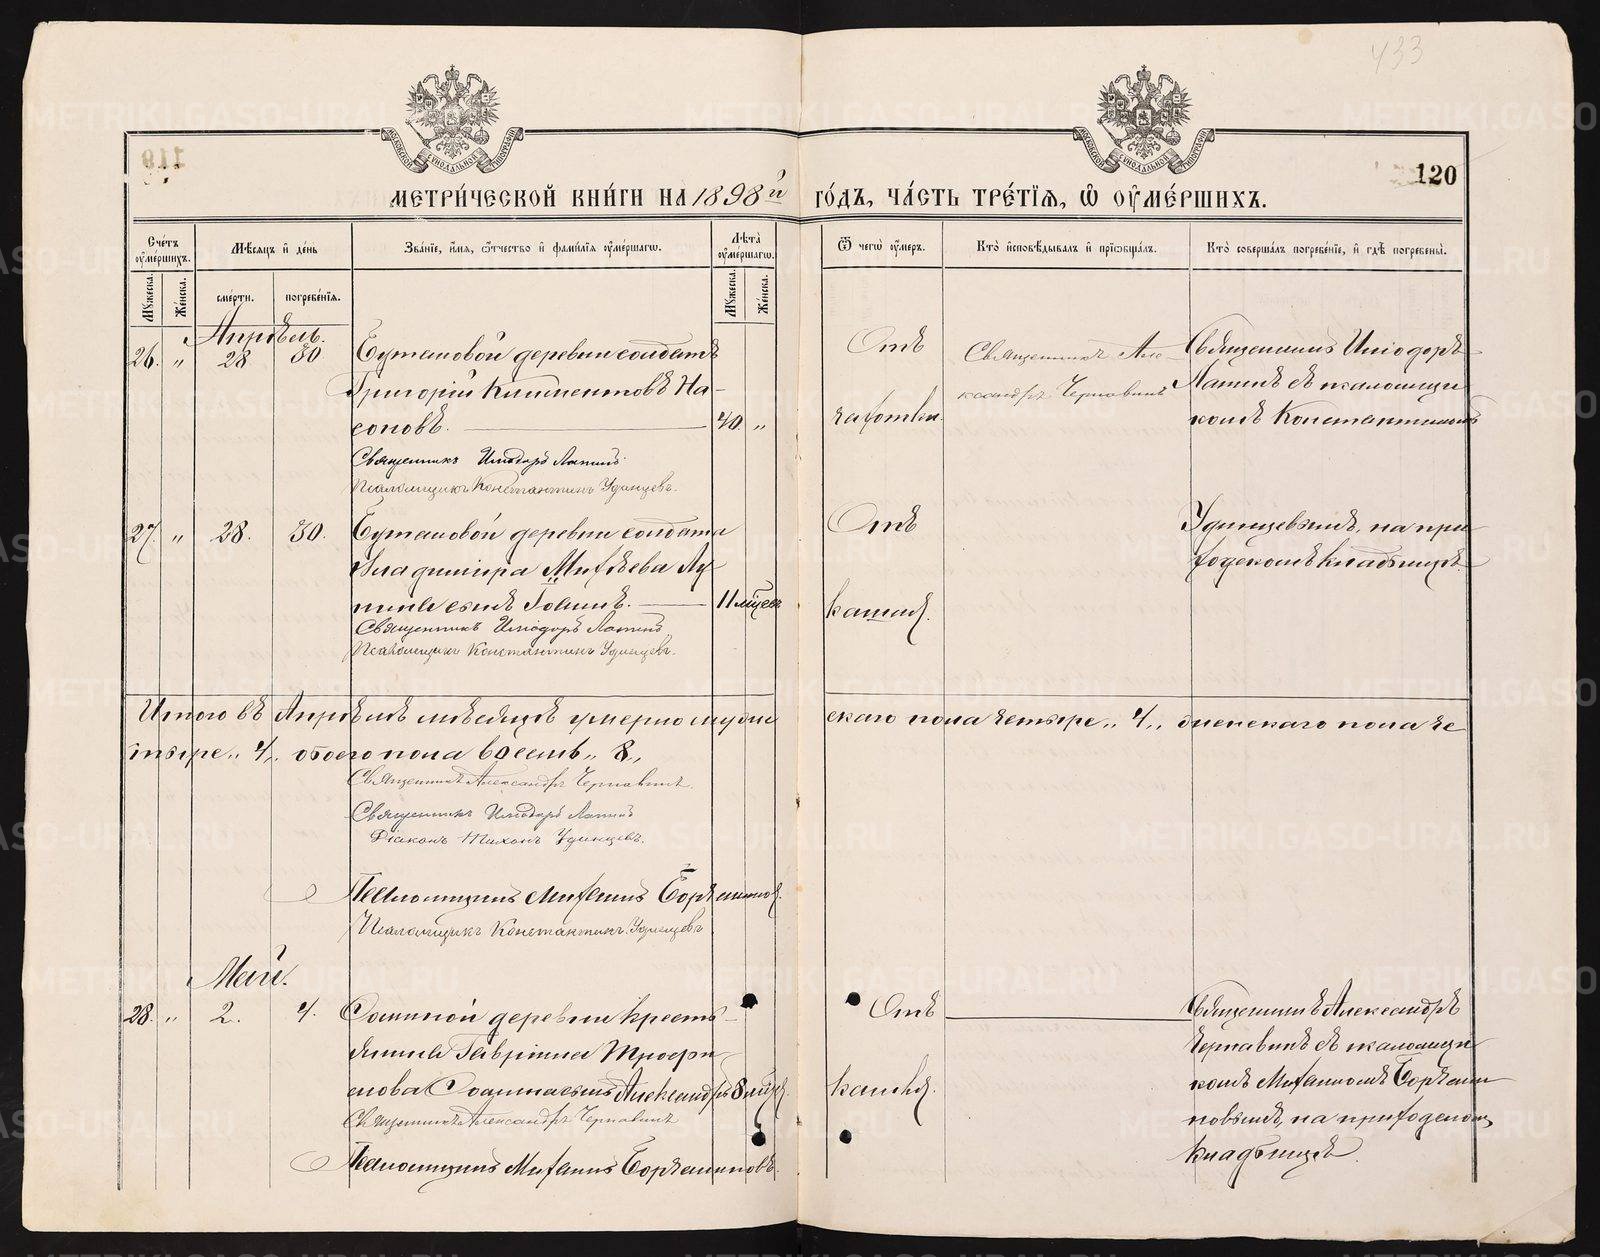 433
120
МЕТРИ́ЧЕСКОЙ КНИ́ГИ НА 1898й ГО́ДЪ, ЧА́СТЬ ТРЕ́ТЇѦ, Ѡ҆ ОУ҆МЕ́РШИХЪ.
Сче́тъ оу҆ме́ршихъ.
Мꙋ́жеска.
Же́нска.
Мѣ́сѧцъ и҆ де́нь
сме́рти.
погребе́нїѧ.
Зва́нїе, и҆́мѧ, ѻ҆́тчество и҆ фами́лїѧ оу҆ме́ршагѡ.
Лѣ́та оу҆ме́ршагѡ.
Мꙋ́жеска.
Же́нска.
Ѿ чегѡ̀ оу҆́меръ.
Кто̀ и҆сповѣ́дывалъ и҆ прїѡбща́лъ.
Кто̀ соверша́лъ погребе́нїе, и҆ гдѣ̀ погребены̀.
Апрѣль.
26. " 28 30 деревни солдатъ
Григорій Климентовъ На-
соновъ. 40. "
Священникъ Иліодоръ Лапинъ
Псаломщикъ Константинъ Удинцевъ.
Отъ
чахотки.
Священникъ Але
ксандръ Чернавинъ
Священникъ Иліодоръ
Лапинъ съ псаломщи
комъ Константиномъ
27. " 28. 30. деревни солдата
Владиміра Михѣева
сынъ 11 мцев
Священникъ Иліодоръ Лапинъ
Псаломщикъ Константинъ Удинцевъ.
Отъ
кашля.
Удинцевымъ, на при
ходскомъ кладбищѣ.
Итого въ Апрѣлѣ мѣсяцѣ умерло муже
скаго пола четыре „4„ женскаго пола че
тыре „4„ обоего пола восемь „8„
Священникъ Александръ Чернавинъ.
Священникъ Иліодоръ Лапинъ
Діаконъ Тихонъ Удинцевъ.
Псаломщикъ Михаилъ
Псаломщикъ Константинъ Удинцевъ
Май.
28. " 2. 4. деревни кресть-
янина Гавріила Трофи-
мова сынъ Александръ 8 мцъ.
Священникъ Александръ Чернавинъ
Псаломщикъ Михаилъ
Отъ
кашля.
Священникъ Александръ
Чернавинъ съ псаломщи
комъ Михаиломъ
новымъ, на приходскомъ
кладбищѣ
METRIKI.GASO-URAL.RU